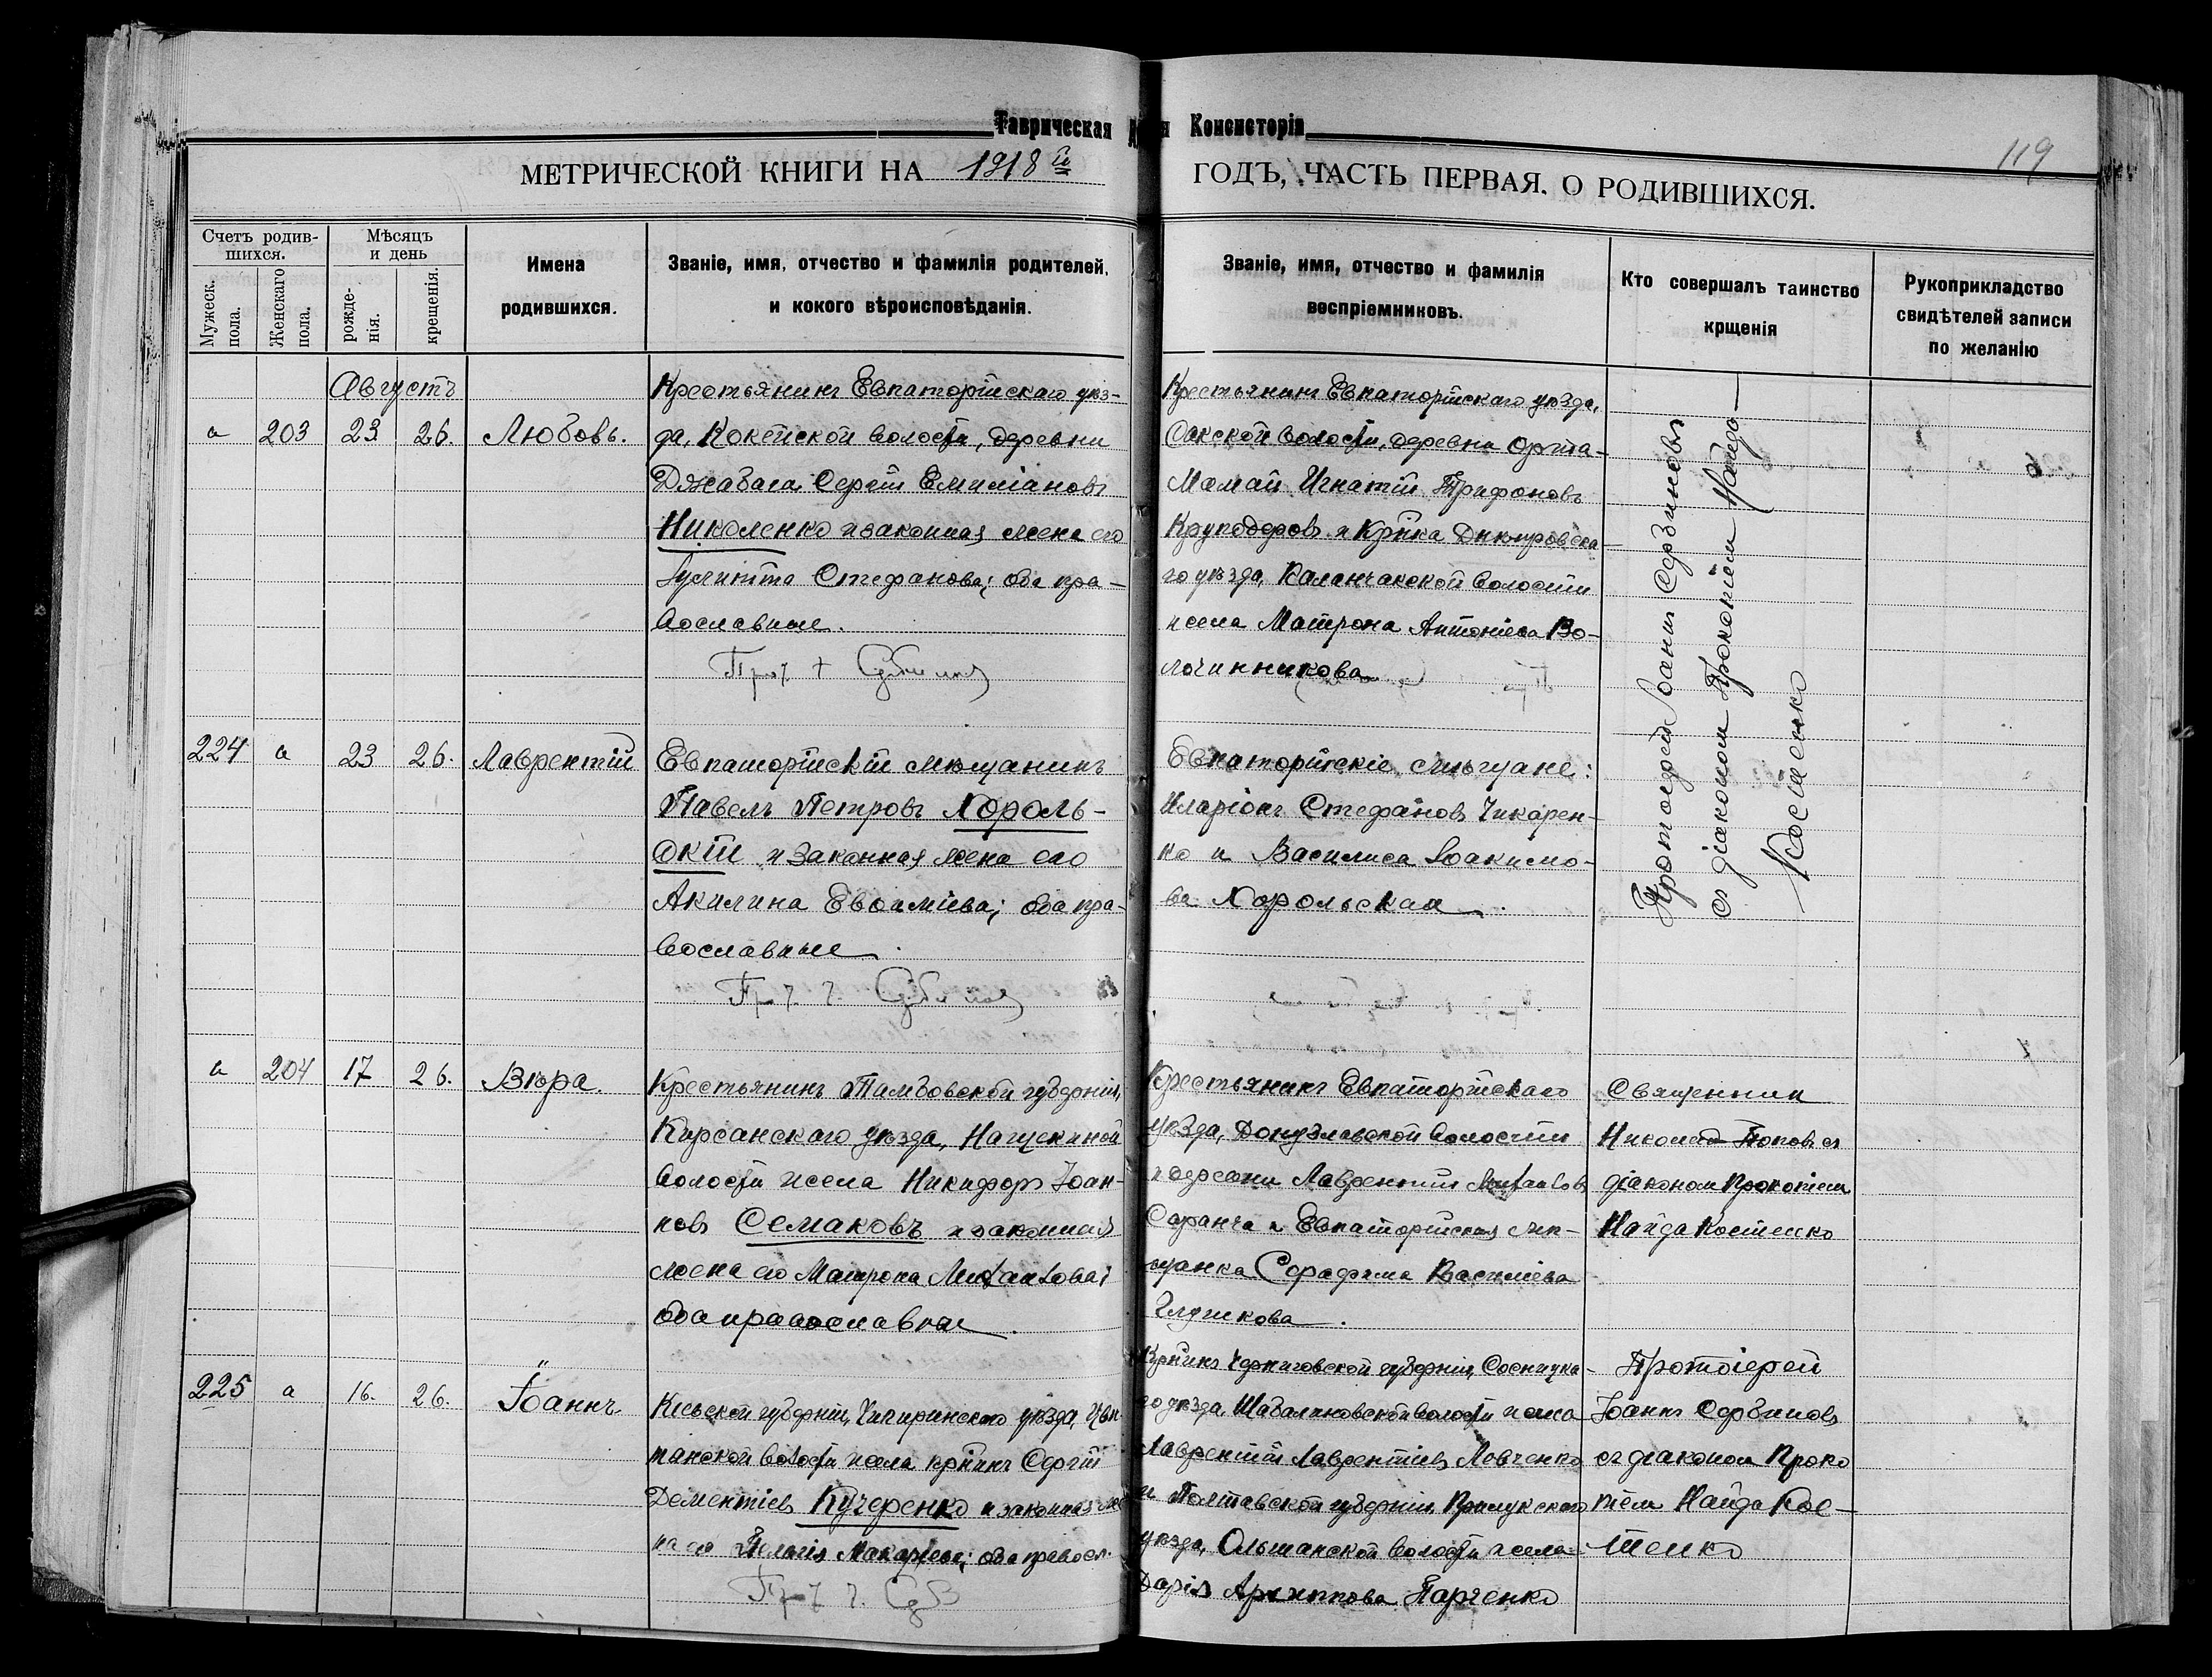 Таврическая Д я Консисторія
119
МЕТРИЧЕСКОЙ КНИГИ НА 1918й ГОДЪ, ЧАСТЬ ПЕРВАЯ. О РОДИВШИХСЯ.
Счетъ родив-
шихся.
Мужеск.
пола.
Женскаго
пола.
Мѣсяцъ
и день
рожде-
нія.
крещенія.
Имена
родившихся.
Званіе, имя, отчество и фамилія родителей,
и кокого вѣроисповѣданія.
Званіе, имя, отчество и фамилія
воспріемниковъ.
Кто совершалъ таинство
крщенія
Рукоприкладство
свидѣтелей записи
по желанію
Августъ
а 203 23 26. Любовь.
Крестьянинъ Евпаторійскаго уѣз-
да, Кокейской волости, деревни
Джабага Сергій Емиліановъ
Николенко и законная жена его
Іулитта Стефанова; оба пра-
вославные.
Крестьянинъ Евпаторійскаго уѣзда,
Сакской волости, деревни Орта-
Мамай Игнатій Трифоновъ
Круподеровъ и Кр-нка Днѣпровска-
го уѣзда, Каланчакской волости
и села Матрона Антоніева Во-
лочинникова
Протоіерей Іоаннъ Сербиновъ
съ діакономъ Прокопіемъ Найда-
Костенко
224 а 23 26. Лаврентій
Евпаторійскій мѣщанинъ
Павелъ Петровъ Хороль-
скій и законная жена его
Акилина Евѳиміева; оба пра-
вославные.
Евпаторійскіе мѣщане:
Иларіонъ Стефановъ Чикарен-
ко и Василиса Іоакимо-
ва Хорольская.
а 204 17 26. Вѣра.
Крестьянинъ Тамбовской губерніи,
Кирсанскаго уѣзда,
волости и села Никифоръ Іоан-
новъ Семаковъ и законная
жена его Матрона Михаилова;
оба православные.
Крестьянинъ Евпаторійскаго
уѣзда, Донузлавской волости
и деревни Лаврентій Михаиловъ
Саранча и Евпаторійская мѣ-
щанка Серафима Василіева
Глушкова.
Священник
Николай Поповъ съ
діакономъ Прокопіемъ
Найда Костенко
225 а 16. 26. Іоаннъ
Кіевской губерніи, Чигиринскаго уѣзда,
волости и села кр-нинъ Сергій
Дементіевъ Кучеренко и законная же-
на его Пелагія Макаріева; оба правосл.
Кр-нинъ Черниговской губерніи, Сосницка-
го уѣзда, Шабалиновской волости и села
Лаврентій Лаврентіевъ Ловченко
и Полтавской губерніи, Прилукскаго
уѣзда, Ольшанской волости и села
Дарія Архиппова Парченко
Протоіерей
Іоаннъ Сербиновъ
съ діакономъ Проко
піемъ Найда Кос-
тенко